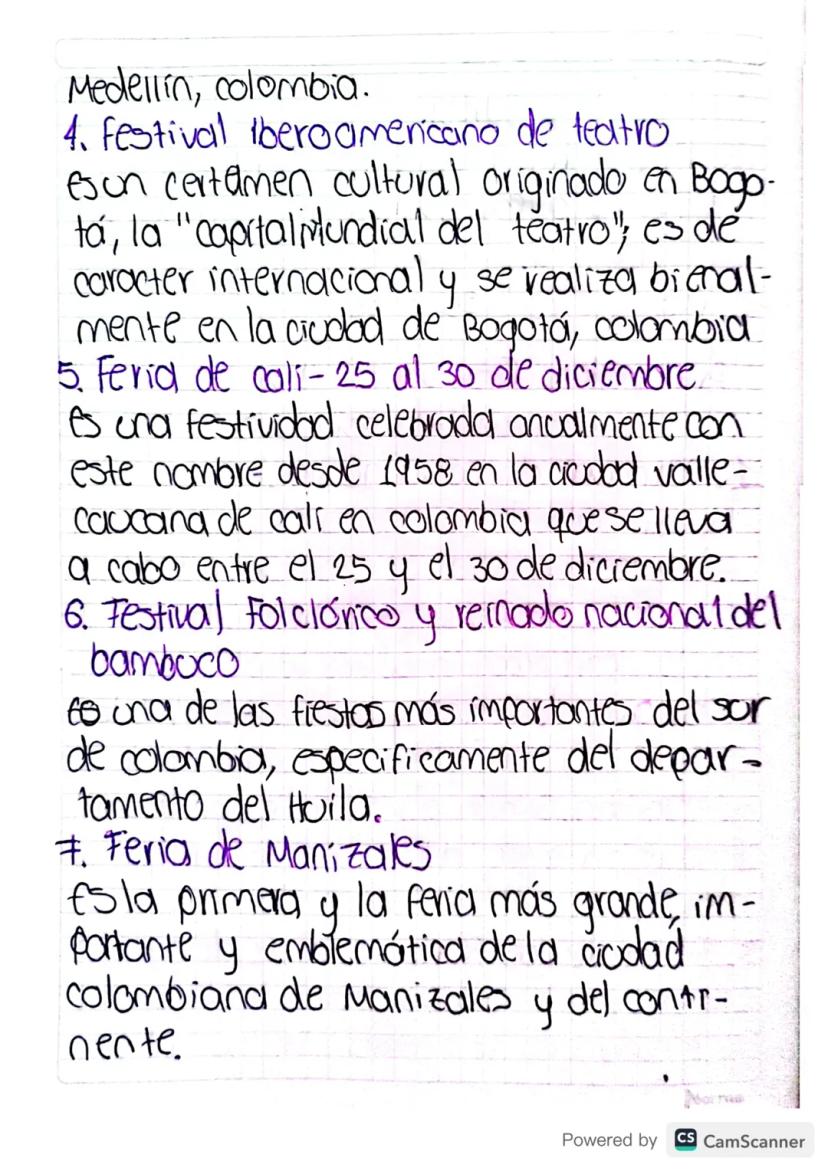 Medellín, colombia.
4. festival iberoamericano de teatro
es un certamen cultural originado en Bogo-
tá, la "capital Mundial del teatro"; es de
caracter internacional y se realiza bienal-
mente en la ciudad de Bogotá, colombia
5. Feria de cali - 25 al 30 de diciembre.
Es una festividad celebrada anualmente con
este nombre desde 1958 en la ciudad valle-
caucana de cali en colombia que se lleva
a cabo entre el 25 y el 30 de diciembre.
6. Festival Folclórico y reinado nacional del
bambuco
es una de las fiestas más importantes del sur
de colombia, especificamente del depar-
tamento del Huila.
7. Feria de Manizales
Es la primera y la feria más grande, im-
portante y emblemática de la ciudad
colombiana de Manizales y del conti-
nente.
Norma
Powered by CS CamScanner